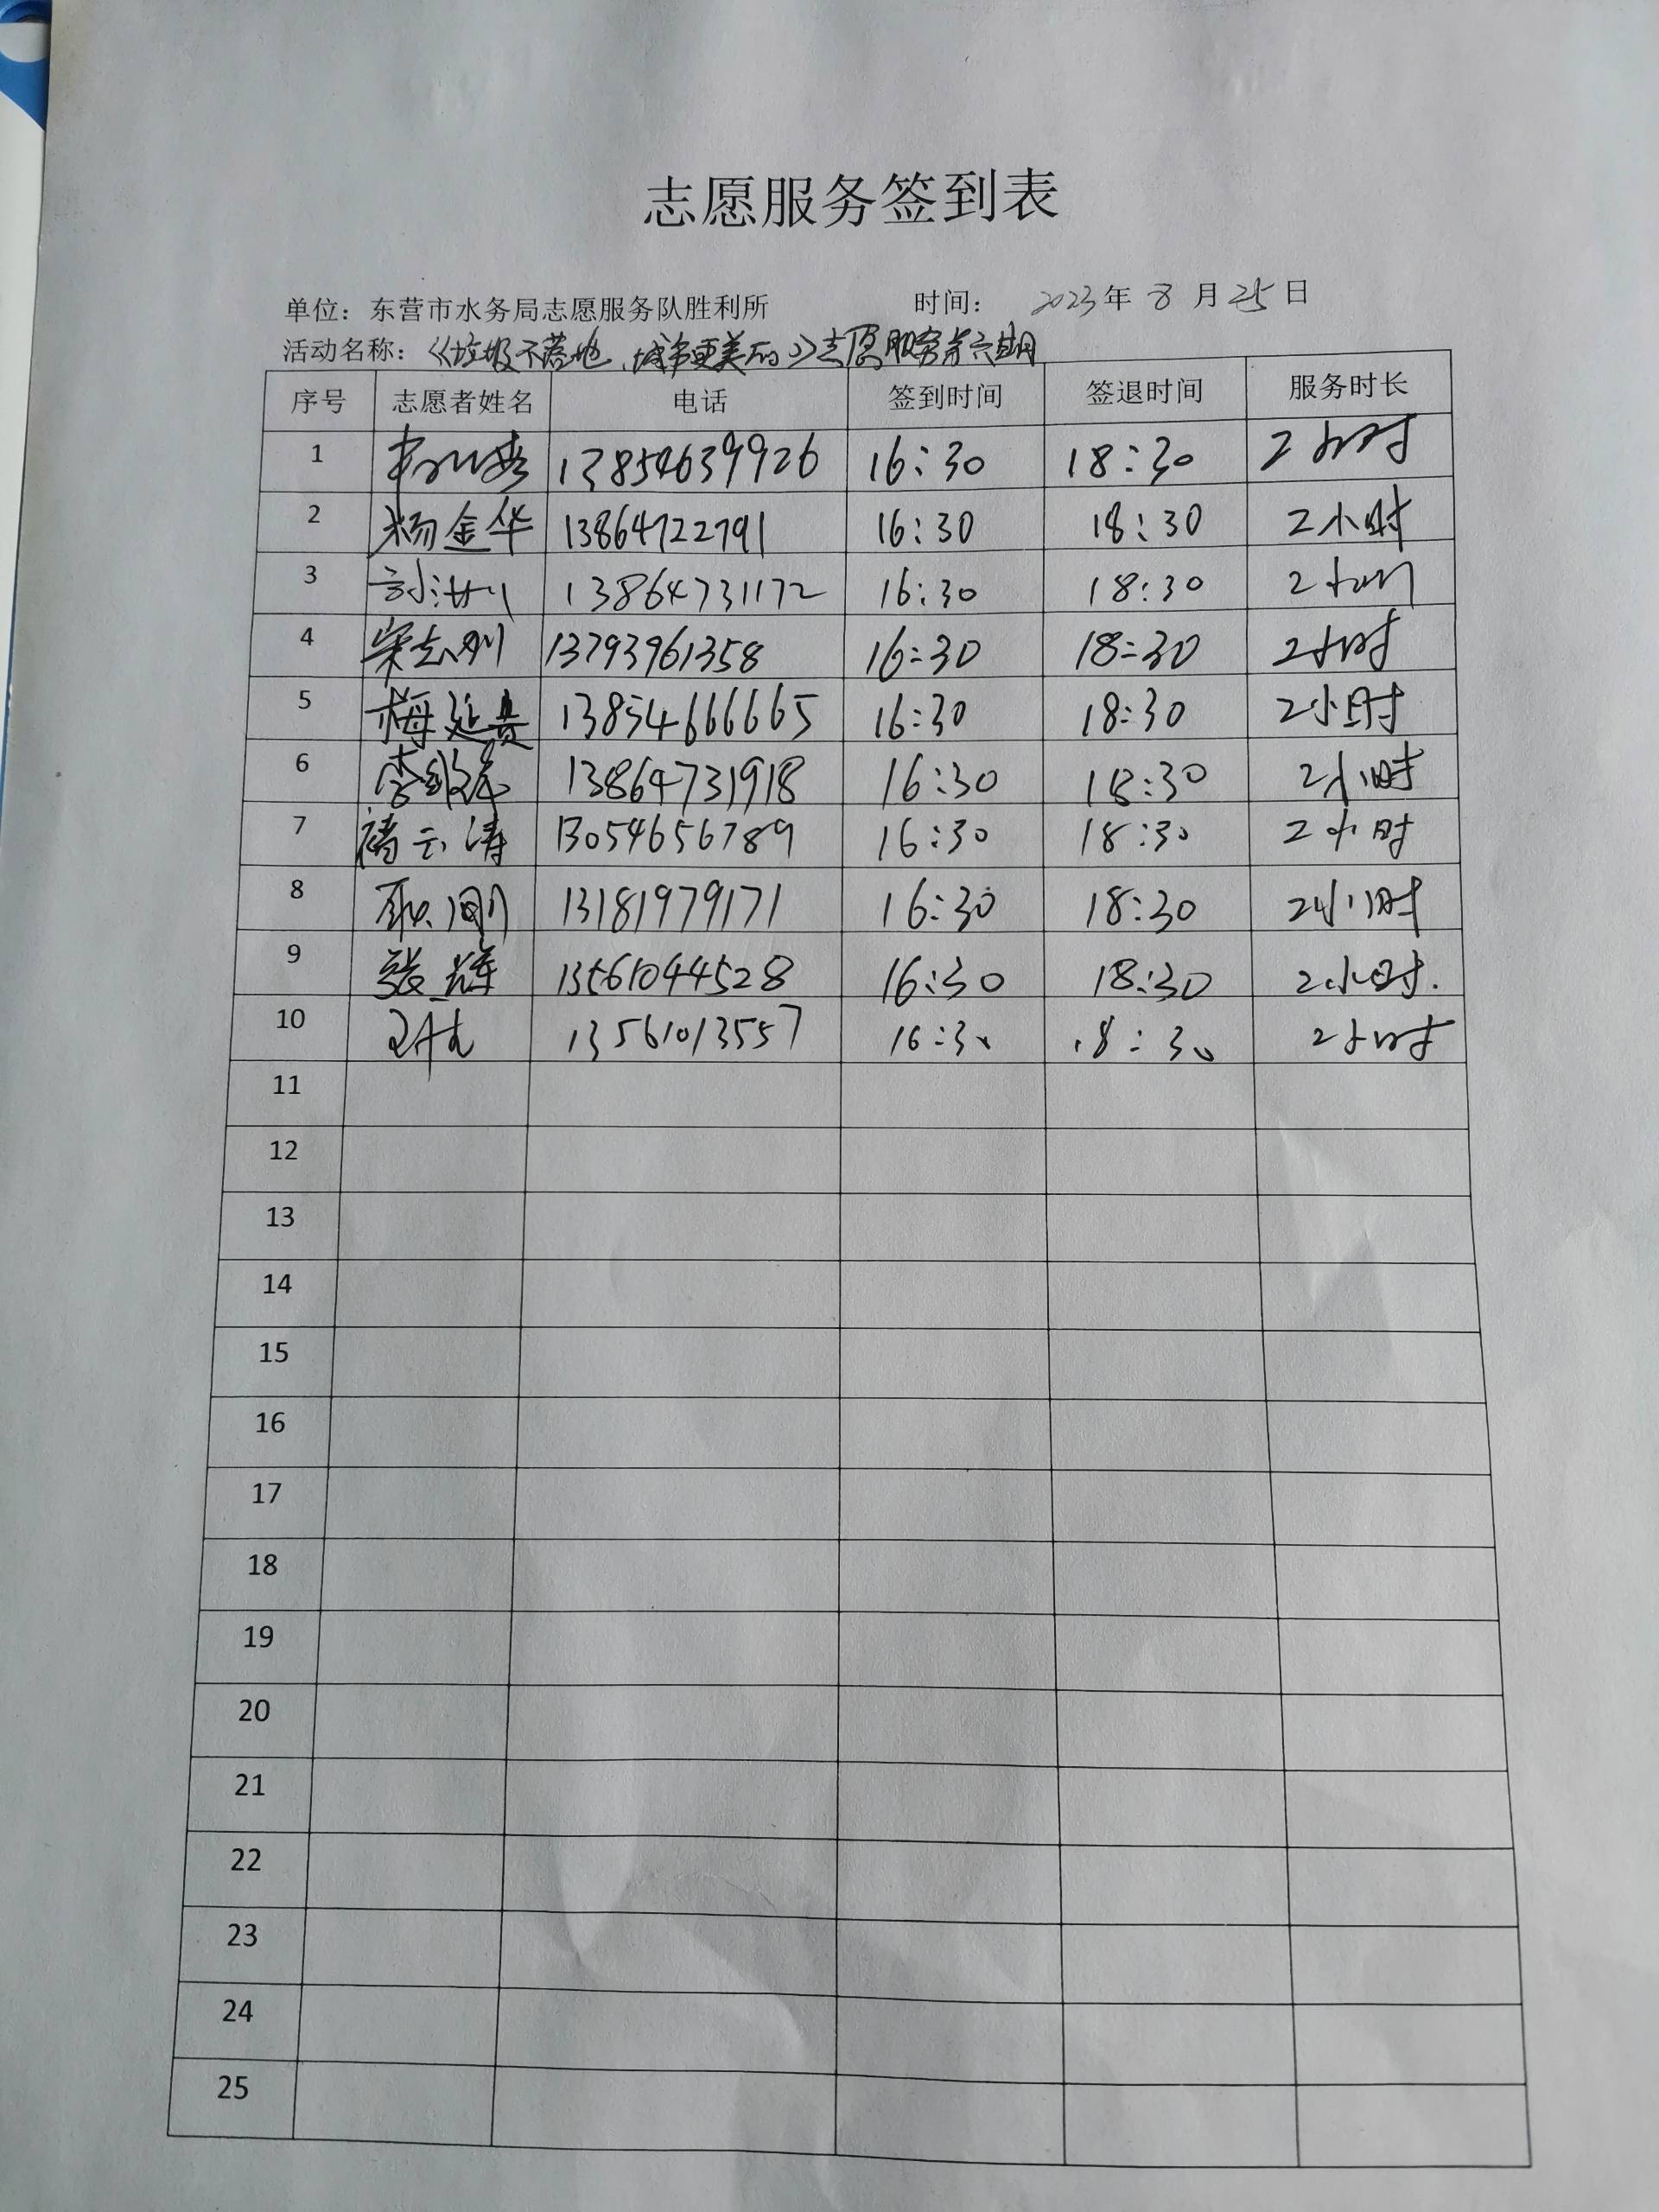 志愿服务签到表
单位：东营市水务局志愿服务队胜利所 时间： 2023年 8 月 25 日
活动名称：《垃圾不落地、城市更美丽》志愿服务第六期
序号 志愿者姓名 电话 签到时间 签退时间 服务时长
1 13854639926 16:30 18:30 2小时
2 杨金华 13864722791 16:30 18:30 2小时
3 13864731172 16:30 18:30 2小时
4 宋志刚 13793961358 16:30 18:30 2小时
5 梅延贵 13854666665 16:30 18:30 2小时
6 13864731918 16:30 18:30 2小时
7 褚云涛 13054656789 16:30 18:30 2小时
8 耿刚 13181979171 16:30 18:30 2小时
9 张辉 13561044528 16:30 18:30 2小时.
10 13561013557 16:30 18:30 2小时
11
12
13
14
15
16
17
18
19
20
21
22
23
24
25